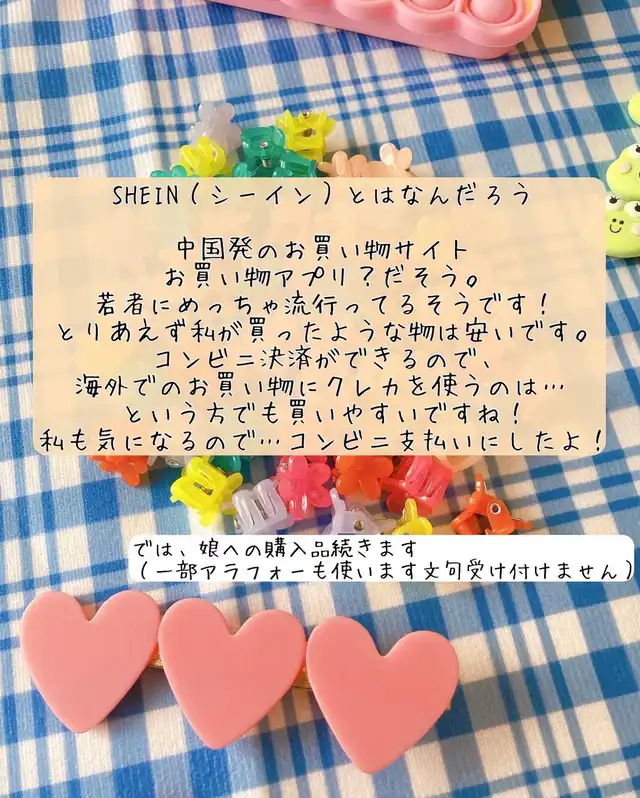 SHEIN（シーイン）とはなんだろう
中国発のお買い物サイト
お買い物アプリ？だそう。
若者にめっちゃ流行ってるそうです！
とりあえず私が買ったような物は安いです。
コンビニ決済ができるので、
海外でのお買い物にクレカを使うのは…
という方でも買いやすいですね！
私も気になるので…コンビニ支払いにしたよ！
では、娘への購入品続きます
（一部アラフォーも使います文句受け付けません）